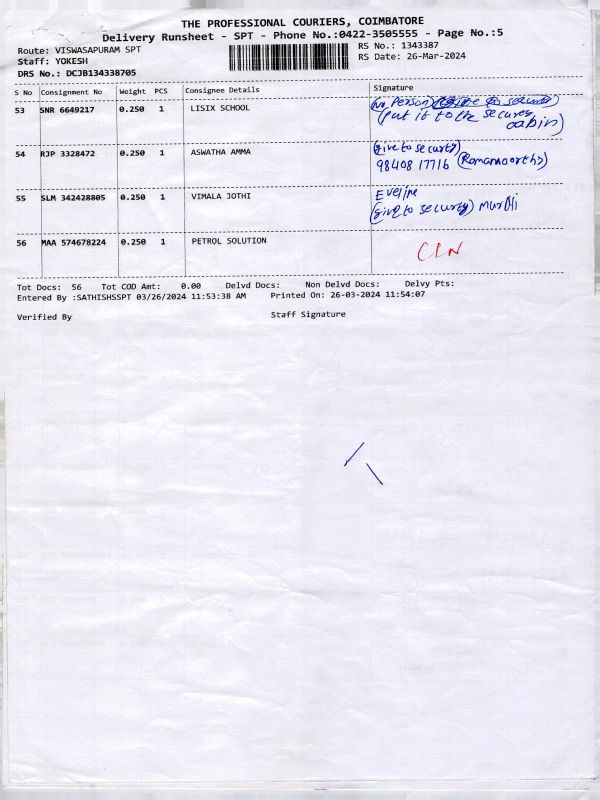 THE PROFESSIONAL COURIERS, COIMBATORE
Delivery Runsheet - SPT - Phone No.:0422-3505555 - Page No.:5
Route: VISWASAPURAM SPT
RS No.: 1343387
Staff: YOKESH
RS Date: 26-Mar-2024
DRS No.: DCJB134338705
S No Consignment No Weight PCS Consignee Details Signature
53 SNR 6649217 0.250 1 LISIX SCHOOL
(No Person)
(Put it to the security
cabin)
54 RJP 3328472 0.250 1 ASWATHA AMMA
(give to security)
98408 17716 (Ramamoorthy)
55 SLM 342428805 0.250 1 VIMALA JOTHI
Eveline
(give to security)
56 MAA 574678224 0.250 1 PETROL SOLUTION
CLN
Tot Docs: 56 Tot COD Amt: 0.00 Delvd Docs: Non Delvd Docs: Delvy Pts:
Entered By :SATHISHSSPT 03/26/2024 11:53:38 AM Printed On: 26-03-2024 11:54:07
Verified By Staff Signature